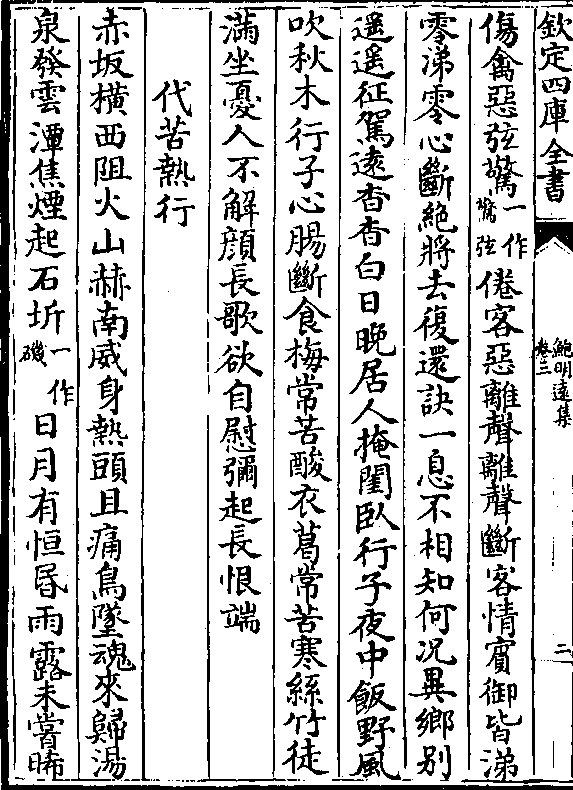 欽定四庫全書
鮑明遠集
卷三
二
傷禽惡弦驚一作驚弦倦客惡離聲離聲斷客情賓御皆涕
零涕零心斷絶將去復還訣一息不相知何况異鄉别
遥遥征駕遠杳杳白日晚居人掩閨臥行子夜中飯野風
吹秋木行子心腸斷食梅常苦酸衣葛常苦寒絲竹徒
滿坐憂人不解顔長歌欲自慰彌起長恨端
代苦熱行
赤坂橫西阻火山赫南威身熱頭且痛鳥墜魂來歸湯
泉發雲潭焦煙起石圻一作磯日月有恒昬雨露未嘗晞